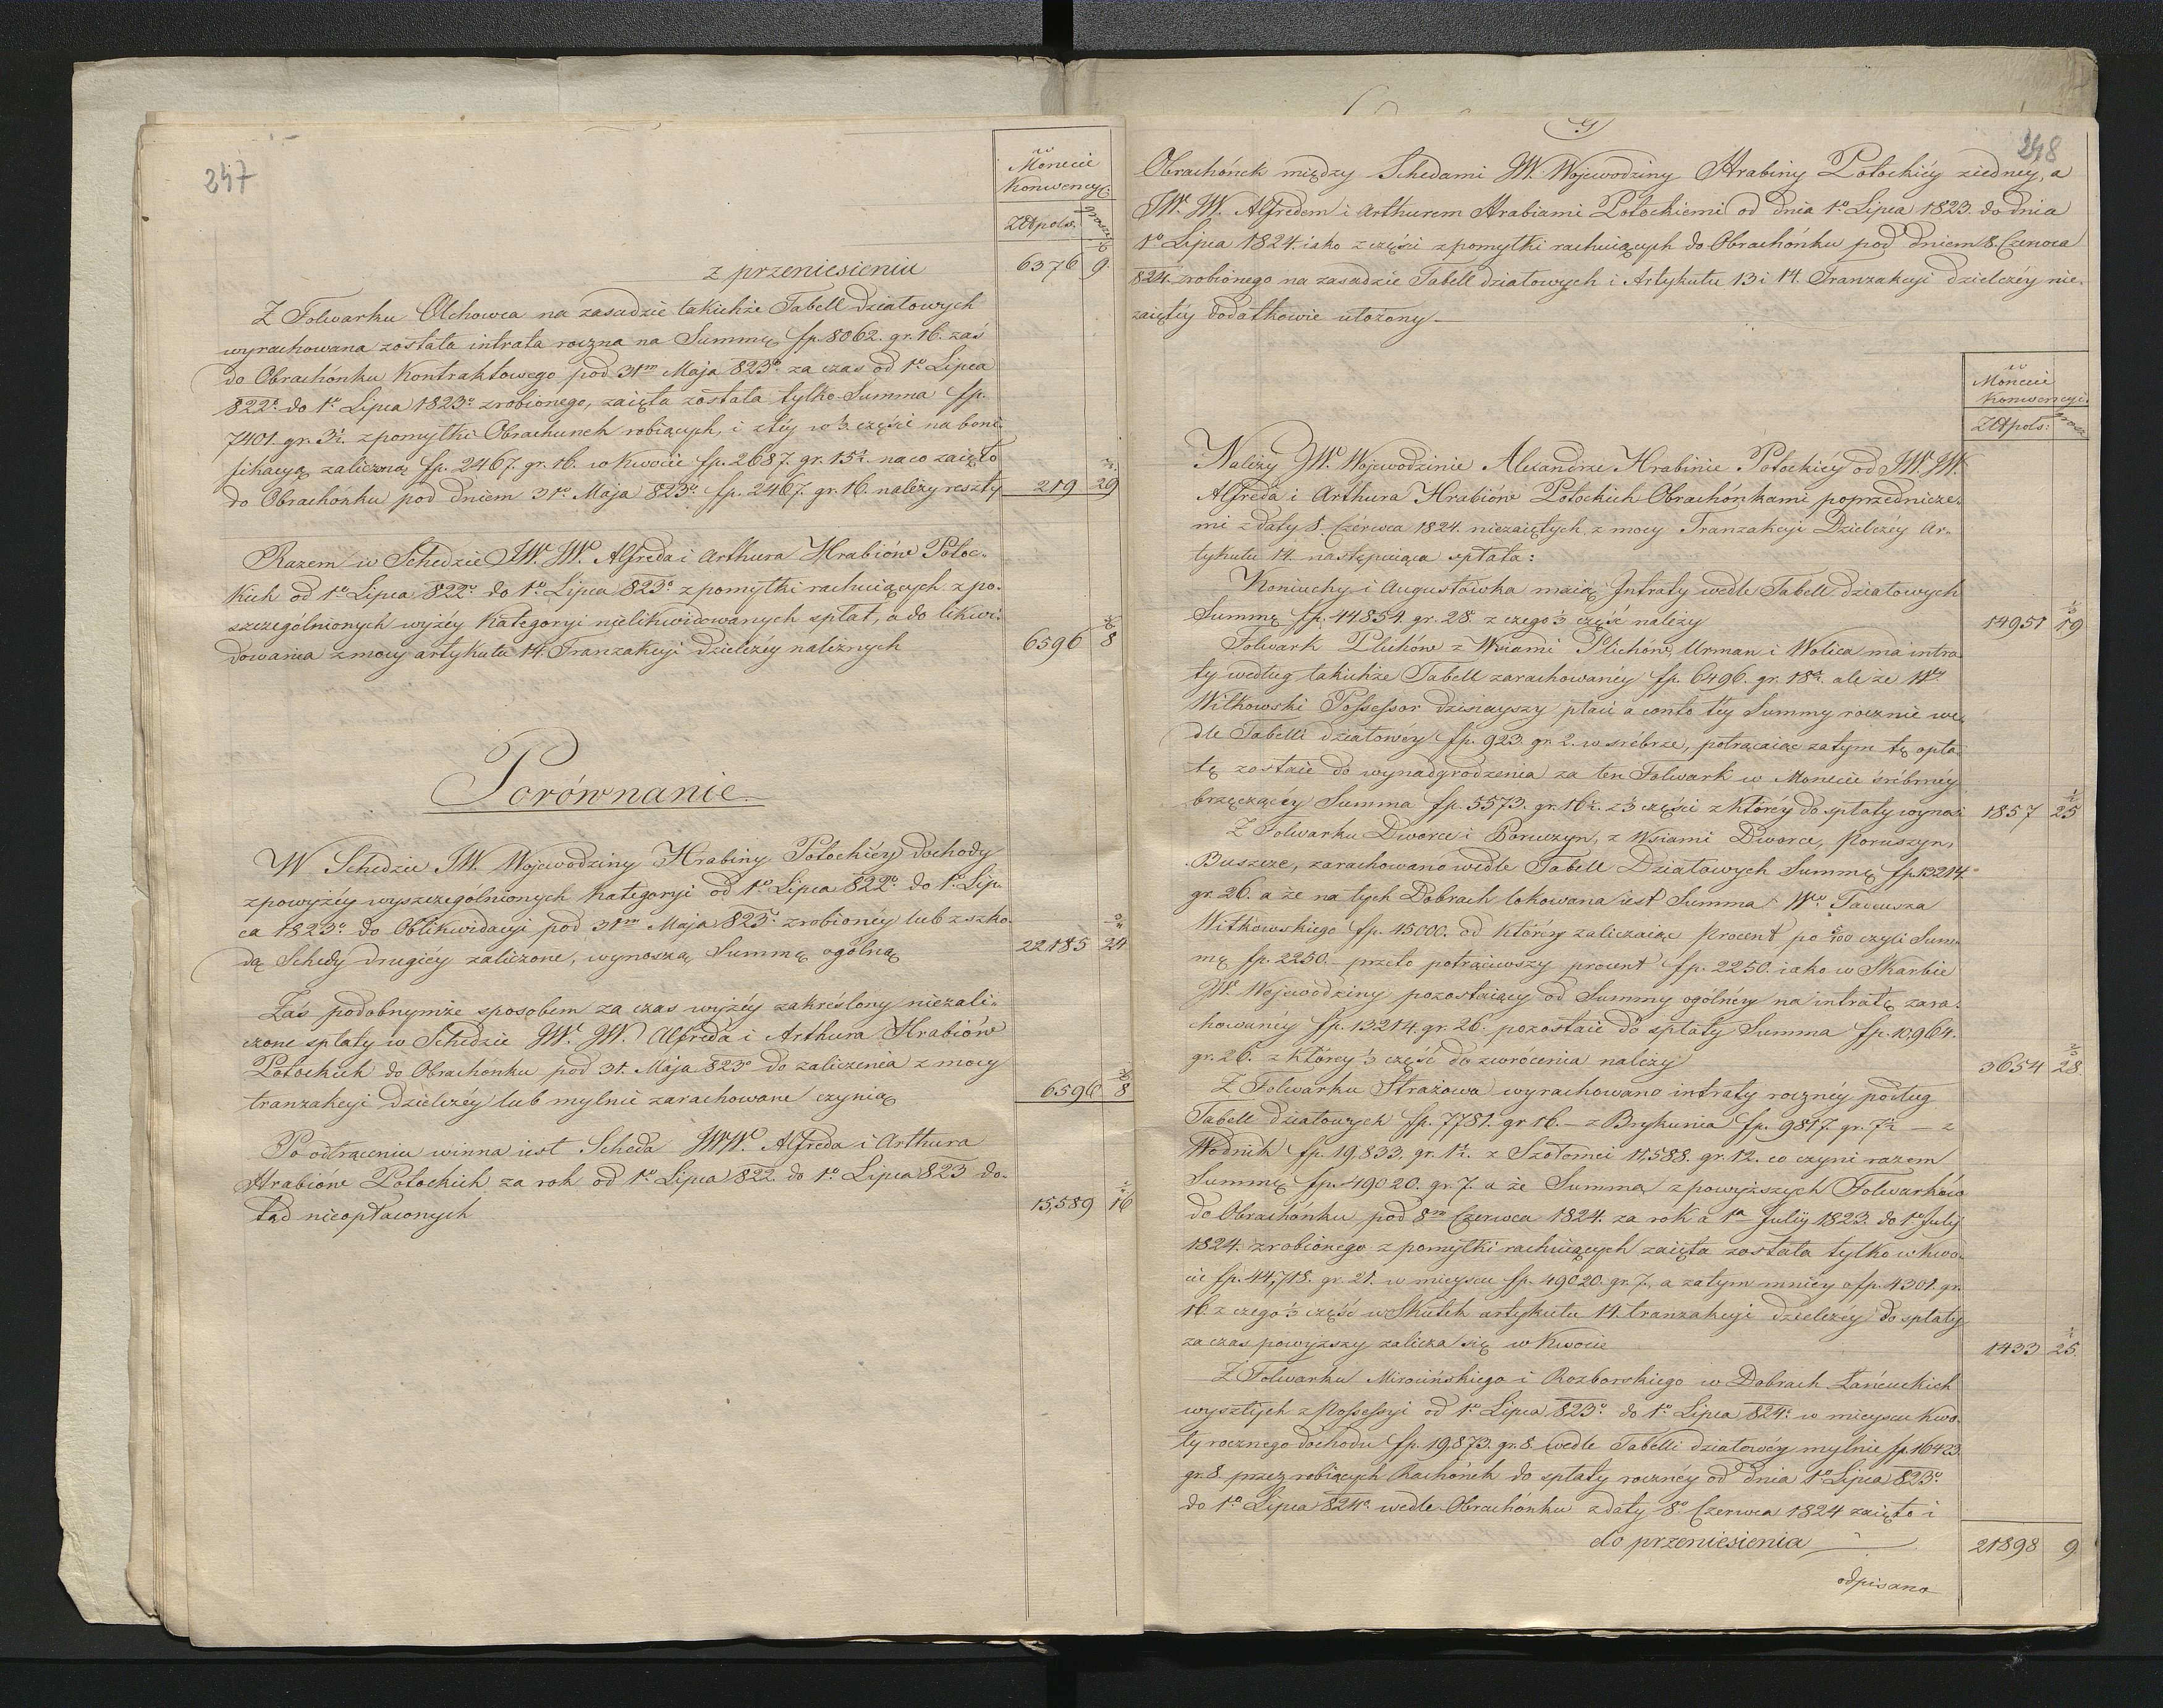 247
w
Monecie
Konwency:
Złł pols: groszy
z przeniesieniu 6376 9.
Z Folwarku Olchowca na zasadzie takichże Tabell działowych
wyrachowana została intrata roczna na Summę fp. 8062. gr. 16. zaś
do Obrachónku Kontraktowego pod 31m Maja 823o. za czas od 1o. Lipca
822o. do 1o. Lipca 1823o. zrobionego, zaięta została tylko Summa fp.
7401. gr. 3½. z pomyłki Obrachunek robiących, i z téy w ⅓ części na boni-
fikacyą zaliczono fp. 2467. gr. 16. w kwocie fp. 2687. gr. 15½. na co zaięto
do Obrachónku pod dniem 31o. Maja 823o. fp. 2467. gr. 16. należy reszty 219 29
Razem w Schedzie JW. W. Alfreda i Arthura Hrabiów Potoc-
kich od 1o. Lipca 822o. do 1o. Lipca 823o. z pomyłki rachuiących z po-
szczególnionych wyżéy Kategoryi nielikwidowanych spłat, a do likwi-
dowania z mocy artykułu 14. Tranzakcyi dzielczéy należnych 6596 8
Porównanie.
W Schedzie JW. Wojewodziny Hrabiny Potockiéy dochody
z powyżéy wyszczególnionych Kategoryi od 1o. Lipca 822o. do 1o. Lip-
ca 1823o. do Oblikwidacyi pod 31m Maja 823o. zrobionéy lub z szko-
dą Schedy drugiéy zaliczone, wynoszą Summę ogólną 22.185 24
Zaś podobnymże sposobem za czas wyżéy zakreślony niezali-
czone spłaty w Schedzie JW. JW. Alfreda i Arthura Hrabiów
Potockich do Obrachonku pod 31. Maja 823o do zaliczenia z mocy
tranzakcyi dzielczéy lub mylnie zarachowane czynią 6596 8
Po odtrąceniu winna iest Scheda JWW. Alfreda i Arthura
Hrabiów Potockich za rok od 1o. Lipca 822. do 1o. Lipca 823 do-
tąd nieopłaconych 15,589 16
248
Obrachónek między Schedami JW. Wojewodziny Hrabiny Potockiéy ziedney, a
JW. JW. Alfredem i Arthurem Hrabiami Potockiemi od dnia 1o. Lipca 1823. do dnia
1o. Lipca 1824. iako z części z pomyłki rachuiących do Obrachónku pod dniem 8. Czerwca
824. zrobionego na zasadzie Tabell działowych i Artykułu 13 i 14. Tranzakcyi dzielczéy nie-
zaiętéy dodatkowie ułożony.
w
Monecie
Konwencyi.
Złł pols: grosz
Należy JW. Wojewodzinie Alexandrze Hrabinie Potockiey od JW. JW.
Alfreda i Arthura Hrabiów Potockich Obrachónkami poprzednicze-
mi z daty 8. Czérwca 1824. niezaiętych z mocy Tranzakcyi Dzielczéy Ar-
tykułu 14. następuiąca spłata:
Koniuchy i Augustówka maią Intraty wedle Tabell działowych
Summę fp. 44.854. gr. 28. z czego ⅓ część należy 14951 19
Folwark Plichów z Wsiami Plichów, Urman i Wolica ma intra-
ty według takichże Tabell zarachowanéy fp. 6496. gr. 18½. ale że Wny
Witkowski Possessor dzisieyszy płaci a conto téy Summy rocznie we-
dle Tabelli działowéy fp. 923. gr. 2. w srébrze, potrącaiąc zatym tę opła-
tę zostaie do wynadgrodzenia za ten Folwark w Monecie śrébrnéy
brzęczącéy Summa fp. 5573. gr. 16½. z ⅓ części z któréy do spłaty wynosi 1857 25
Z Folwarku Dworce i Poruszyn, z Wsiami Dworce, Poruszyn,
Buszcze, zarachowano wedle Tabell Działowych Summę fp. 13214
gr. 26. a że na tych Dobrach lokowana iest Summa Wo. Tadeusza
Witkowskiego fp. 45000. od któréy zaliczaiąc Procent po 5/100 czyli Sum-
mę fp. 2250. przeto potrąciwszy procent fp. 2250. iako w Skarbie
JW. Wojewodziny pozostaiący od Summy ogólnéy na intratę zara-
chowanéy fp. 13214. gr. 26. pozostaie do spłaty Summa fp. 10,964.
gr. 26. z któréy ⅓ część do zwrócenia należy 3654 28
Z Folwarku Strażowa wyrachowano intraty rocznéy podług
Tabell działowych fp. 7781. gr 16. — z Brykunia fp. 9817. gr. 7½ — z
Wodnik fp. 19,833. gr. 1½. z Szołomei 11,588. gr. 12. co czyni razem
Summę fp. 49020. gr. 7. a że Summa z powyższych Folwarków
do Obrachónku pod 8m Czerwca 1824. za rok a 1a Julii 1823. do 1o July
1824. zrobionego z pomyłki rachuiących zaięta została tylko w kwo-
cie fp. 44,718. gr. 21. w mieyscu fp. 49020. gr. 7, a zatym mniéy o fp. 4301. gr.
16. z czego ⅓ część w Skutek artykułu 14. tranzakcyi dzielczéy do spłaty
za czas powyższy zalicza się w Kwocie 1433 25
Z Folwarku Mirocińskiego i Rozborskiego w Dobrach Łańcuckich
wyszłych z Possessyi od 1o. Lipca 823o. do 1o. Lipca 824o. w mieyscu kwo-
ty rocznego dochodu fp. 19,873. gr. 8. wedle Tabelli działowéy mylnie fp. 16423
gr. 8. przez robiących Rachónek do spłaty rocznéy od dnia 1o Lipca 823o.
do 1o. Lipca 824o. wedle Obrachónku z daty 8o Czerwca 1824 zaięto i
do przeniesienia 21898 9
odpisano